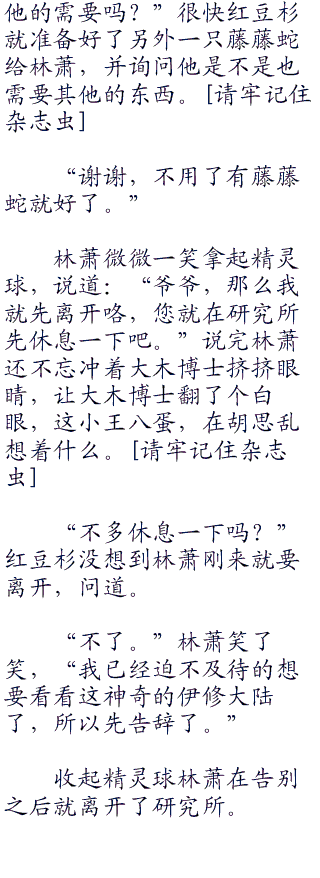 他的需要吗？”很快红豆杉
就准备好了另外一只藤藤蛇
给林萧，并询问他是不是也
需要其他的东西。[请牢记住
杂志虫]
“谢谢，不用了有藤藤
蛇就好了。”
林萧微微一笑拿起精灵
球，说道：“爷爷，那么我
就先离开咯，您就在研究所
先休息一下吧。”说完林萧
还不忘冲着大木博士挤挤眼
睛，让大木博士翻了个白
眼，这小王八蛋，在胡思乱
想着什么。[请牢记住杂志
虫]
“不多休息一下吗？”
红豆杉没想到林萧刚来就要
离开，问道。
“不了。”林萧笑了
笑，“我已经迫不及待的想
要看看这神奇的伊修大陆
了，所以先告辞了。”
收起精灵球林萧在告别
之后就离开了研究所。